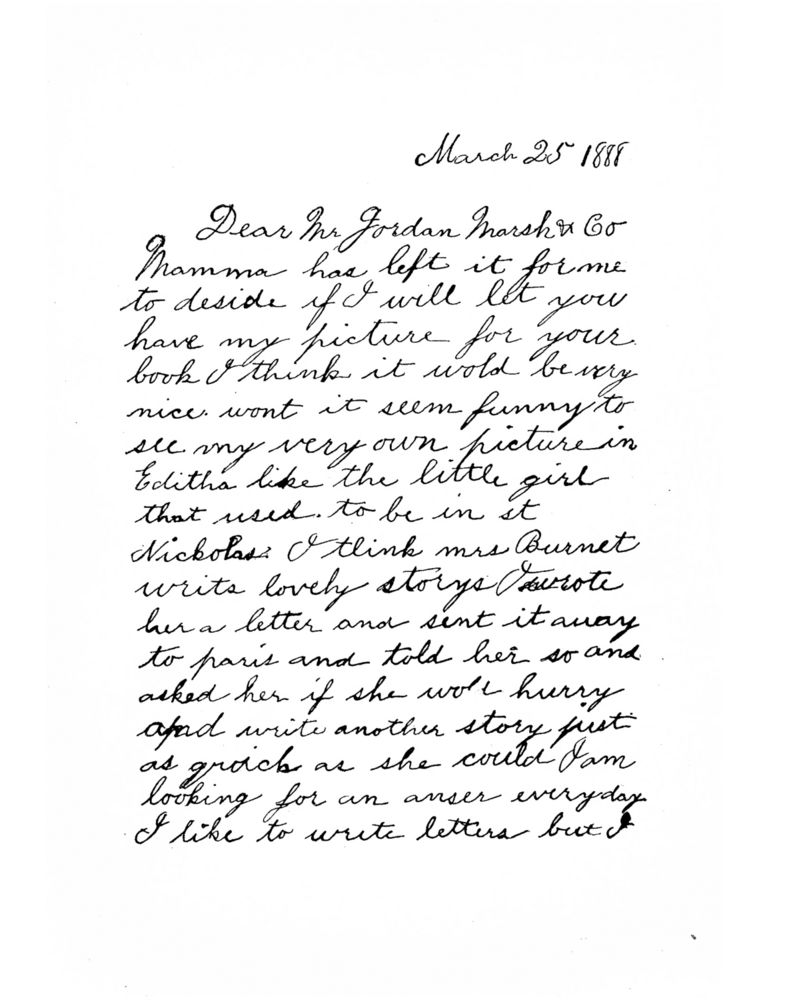 March 25 1888
Dear Mr Jordan Marsh & Co
Mamma has left it for me
to deside if I will let you
have my picture for your
book I think it wold be very
nice. wont it seem funny to
see my very own picture in
Editha like the little girl
that used. to be in st
Nickolas. I think mrs Burnet
writs lovely storys I wrote
her a letter and sent it away
to paris and told her so and
asked her if she wold hurry
apd write another story just
as qroick as she could I am
looking for an anser everyday
I like to write letters but I